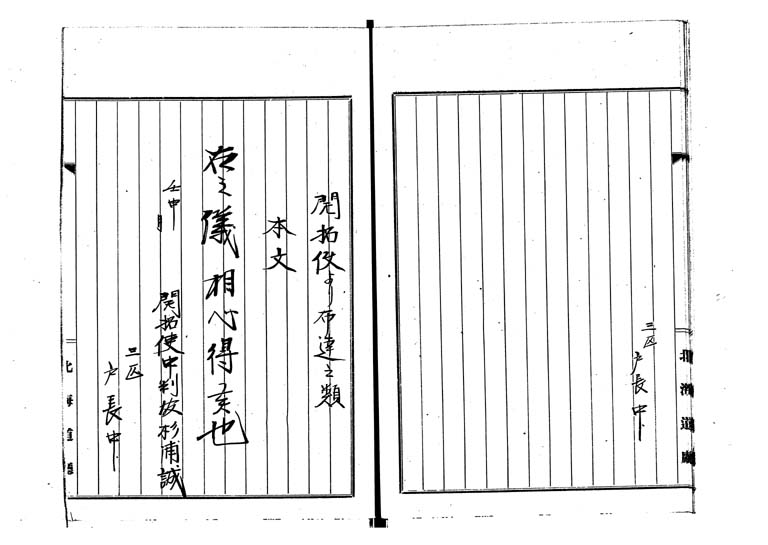 三区
戸長中
北海道廳
開拓使より布達之類
本文
右之儀相心得可き也
壬申 月
開拓使中判官杉浦誠
三区
戸長中
北海道廳